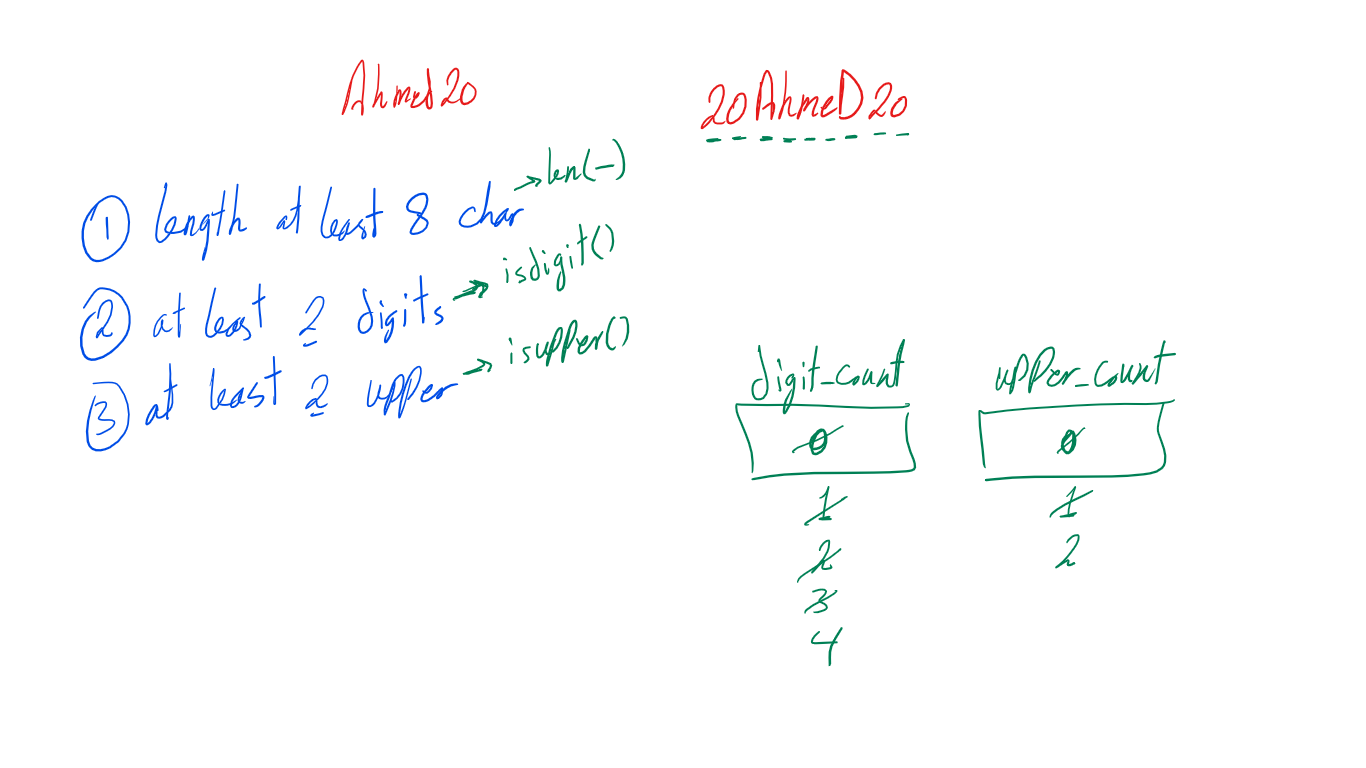 Ahmed20
20AhmeD20
① length at least 8 char → len(-)
② at least 2 digits → isdigit()
③ at least 2 upper → isupper()
digit_count
upper_count
0
0
1
1
2
2
3
4